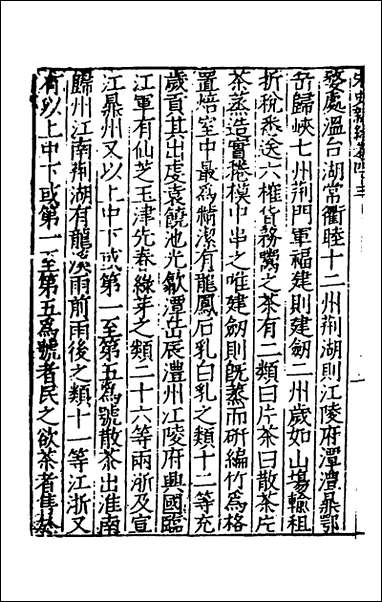 宋史新編卷四十三
婺處溫台湖常衢睦十二州荆湖則江陵府潭澧鼎鄂
岳歸峽七州荆門軍福建則建劒二州歲如山場輸租
折稅悉送六榷貨務鬻之茶有二類曰片茶曰散茶片
茶蒸造實捲模中串之唯建劒則旣蒸而研編竹爲格
置焙室中最爲精潔有龍鳳石乳白乳之類十二等充
歲貢其出虔袁饒池光歙潭岳辰澧州江陵府興國臨
江軍有仙芝玉津先春綠芽之類二十六等兩浙及宣
江鼎州又以上中下或第一至第五爲號散茶出淮南
歸州江南荆湖有龍溪雨前雨後之類十一等江浙又
有以上中下或第一至第五爲號者民之欲茶者售於